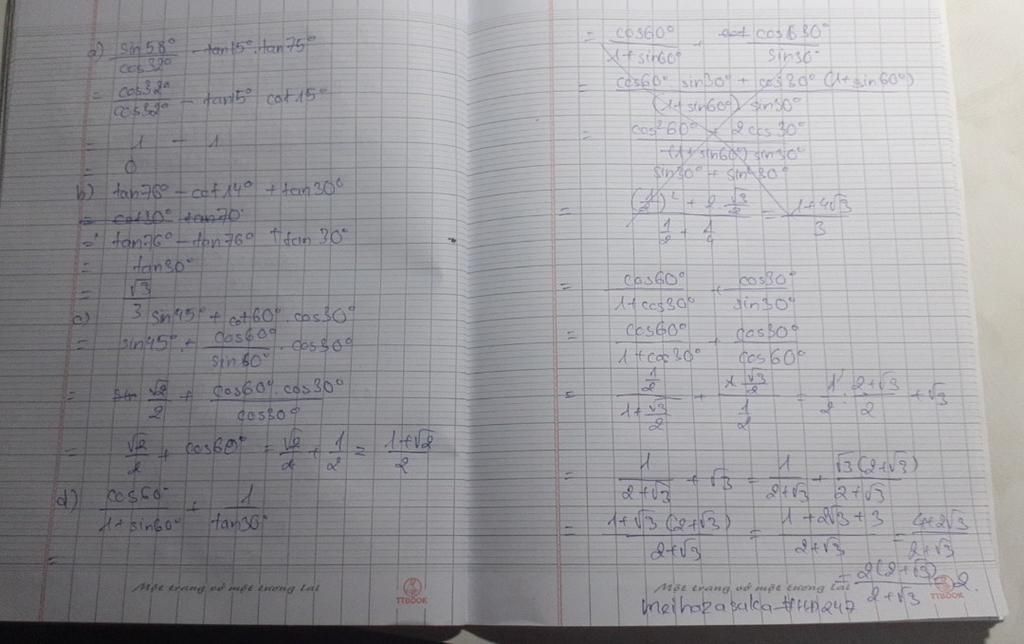 a) sin58°/cos32° - tan15°.tan75°
= cos32°/cos32° - tan15° cot15°
= 1 - 1
= 0
b) tan76° - cot14° + tan30°
= cot30° tan70°
= tan76° - tan76° + tan30°
= tan30°
= √3/3
c) sin45° + cot60°.cos30°
= sin45° + cos60°/sin60° . cos30°
= √2/2 + cos60°.cos30°/cos30°
= √2/2 + cos60° = √2/2 + 1/2 = (1+√2)/2
d) cos60°/(1+sin60°) + 1/tan30°
=
Một trang vở một tương lai
TTBOOK
= cos60°/(1+sin60°) + cos30°/sin30°
= (cos60° sin30° + cos30° (1+sin60°))/((1+sin60°) sin30°)
= (cos²60° + 2cos30°)/((1+sin60°) sin30°)
sin30° + sin²30°
= ((1/2)² + 2 √3/2)/(1/2 + 1/4) = (1+4√3)/3
= cos60°/(1+cos30°) + cos30°/sin30°
= cos60°/(1+cos30°) + cos30°/cos60°
= (1/2)/(1+√3/2) + (√3/2)/(1/2) = 1/2 : (2+√3)/2 + √3
= 1/(2+√3) + √3 = 1/(2+√3) + √3(2+√3)/(2+√3)
= (1+√3(2+√3))/(2+√3) = (1+2√3+3)/(2+√3) = (4+2√3)/(2+√3)
= 2(2+√3)/(2+√3) = 2.
Một trang vở một tương lai
TTBOOK